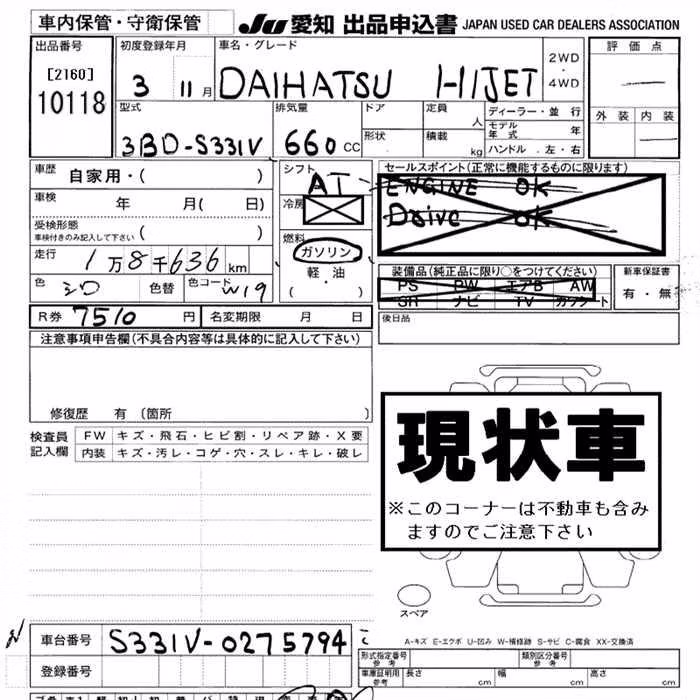 車内保管・守衛保管 JU 愛知 出品申込書 JAPAN USED CAR DEALERS ASSOCIATION
出品番号 初度登録年月 車名・グレード 評価点
[2160] 3 11月 DAIHATSU HIJET 2WD・4WD
10118 外装 内装
型式 排気量 ドア 定員 人 ディーラー・並行
モデル年式 年
3BD-S331V 660 CC 形状 積載 kg ハンドル 左・右
車歴 自家用・( ) シフト AT セールスポイント(正常に機能するものに限ります)
ENGINE OK
車検 年 月( 日) 冷房 Drive OK
受検形態
車検付きのみ記入して下さい ( ) 燃料
走行 1万8千636km ガソリン
軽油
( ・ )
装備品(純正品に限り○をつけてください) 新車保証書
PS PW エアB AW 有・無
SR ナビ TV カワシート
色 シロ 色替 色コード W19
R券 7510 円 名変期限 月 日 後日品
注意事項申告欄(不具合内容等は具体的に記入して下さい)
修復歴 有 (箇所 )
現状車
※このコーナーは不動車も含み
ますのでご注意下さい
検査員 FW キズ・飛石・ヒビ割・リペア跡・X要
記入欄 内装 キズ・汚レ・コゲ・穴・スレ・キレ・破レ
スペア
A-キズ E-エクボ U-凹み W-補修跡 S-サビ C-腐食 XX-交換済
車台番号 S331V-0275794
登録番号
形式指定番号 参考 類別区分番号 参考
車庫証明用 参考 長さ cm 幅 cm 高さ cm